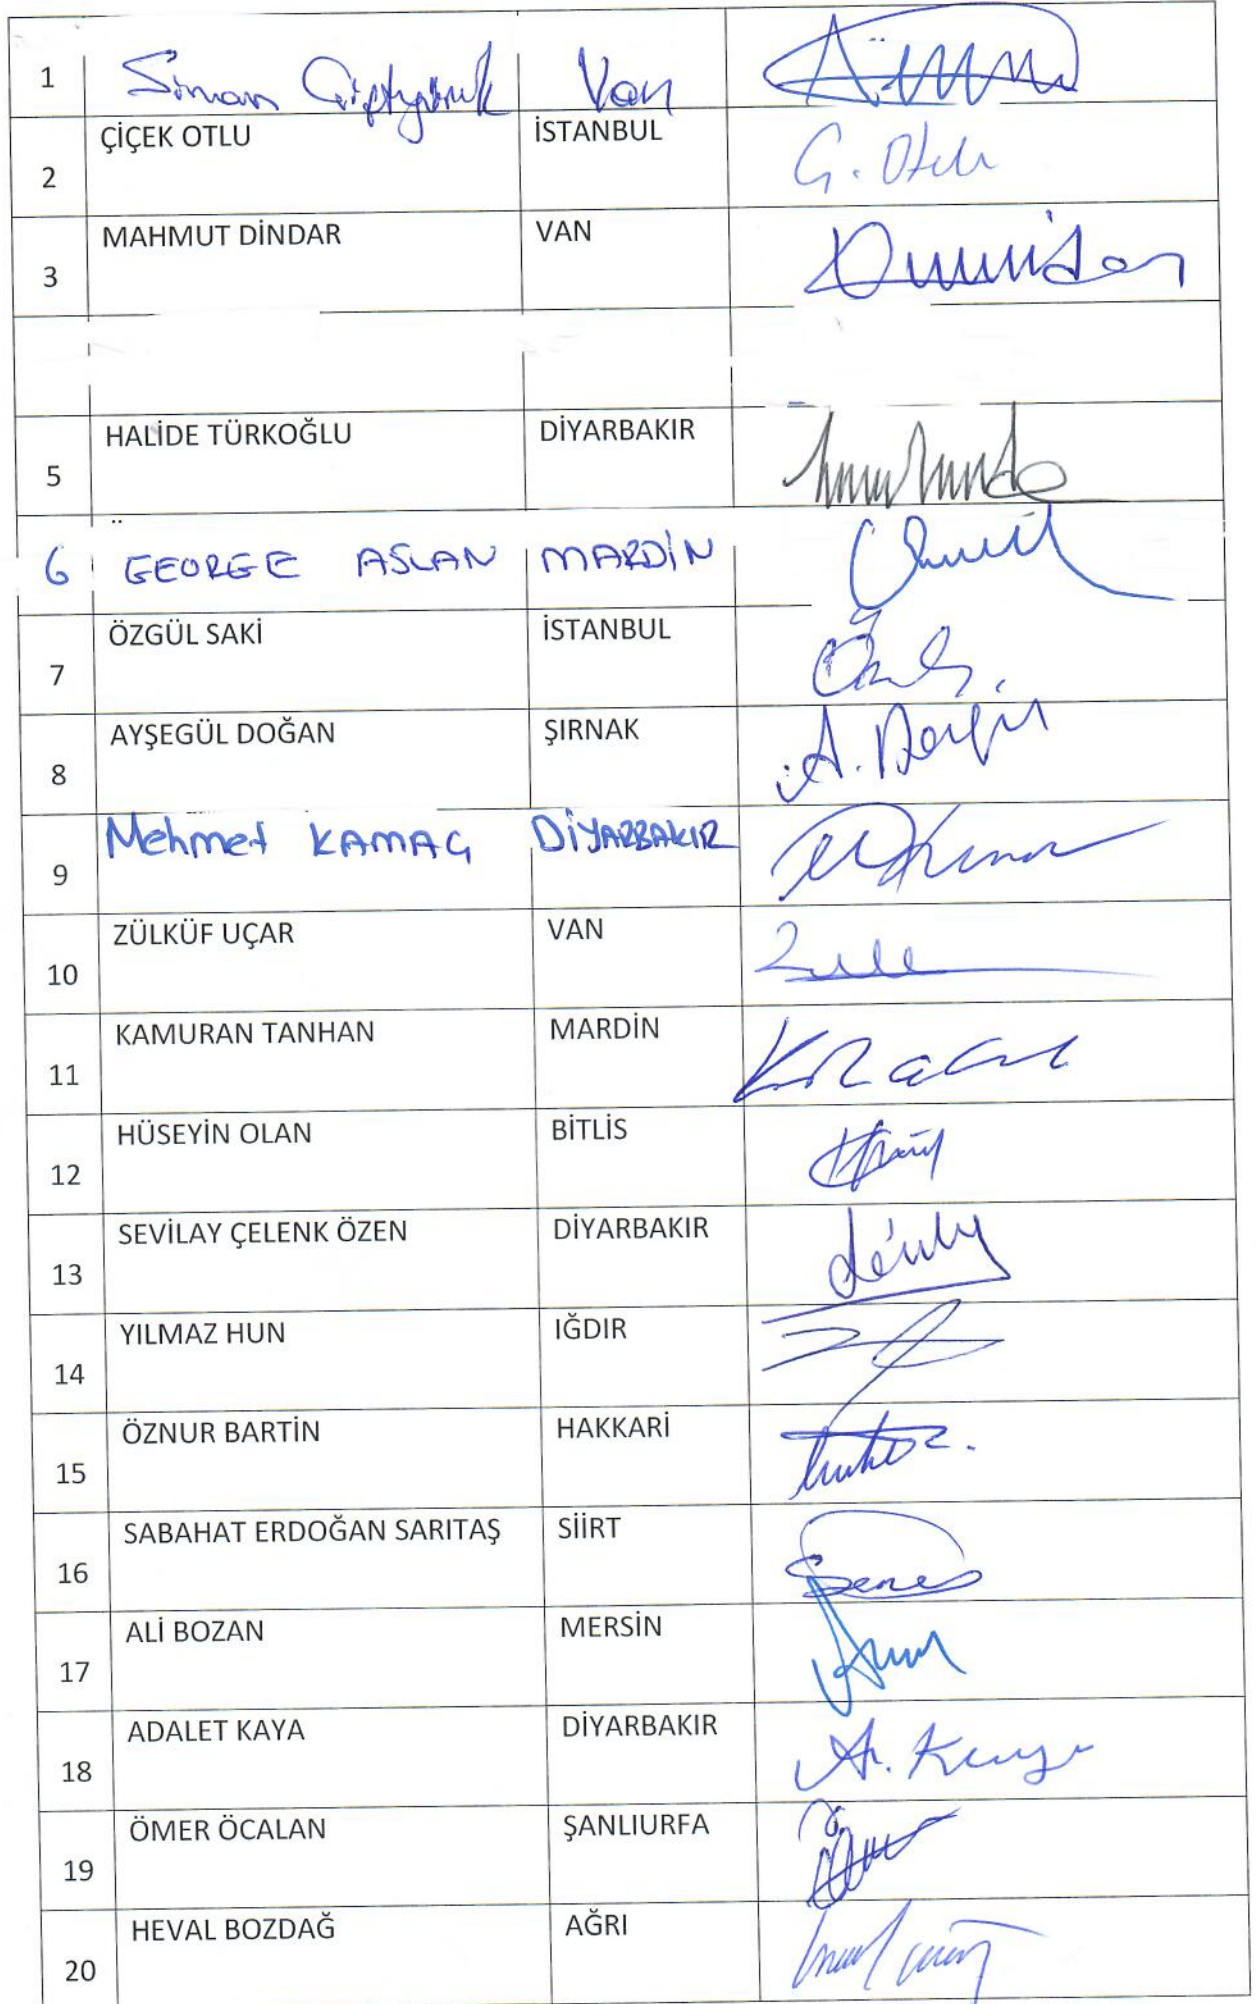 1 Sinan Çiftyürek Van
2 ÇİÇEK OTLU İSTANBUL Ç. Otlu
3 MAHMUT DİNDAR VAN
5 HALİDE TÜRKOĞLU DİYARBAKIR
6 GEORGE ASLAN MARDİN
7 ÖZGÜL SAKİ İSTANBUL
8 AYŞEGÜL DOĞAN ŞIRNAK
9 Mehmet KAMAÇ DİYARBAKIR
10 ZÜLKÜF UÇAR VAN
11 KAMURAN TANHAN MARDİN
12 HÜSEYİN OLAN BİTLİS
13 SEVİLAY ÇELENK ÖZEN DİYARBAKIR
14 YILMAZ HUN IĞDIR
15 ÖZNUR BARTİN HAKKARİ
16 SABAHAT ERDOĞAN SARITAŞ SİİRT
17 ALİ BOZAN MERSİN
18 ADALET KAYA DİYARBAKIR A. Kaya
19 ÖMER ÖCALAN ŞANLIURFA
20 HEVAL BOZDAĞ AĞRI